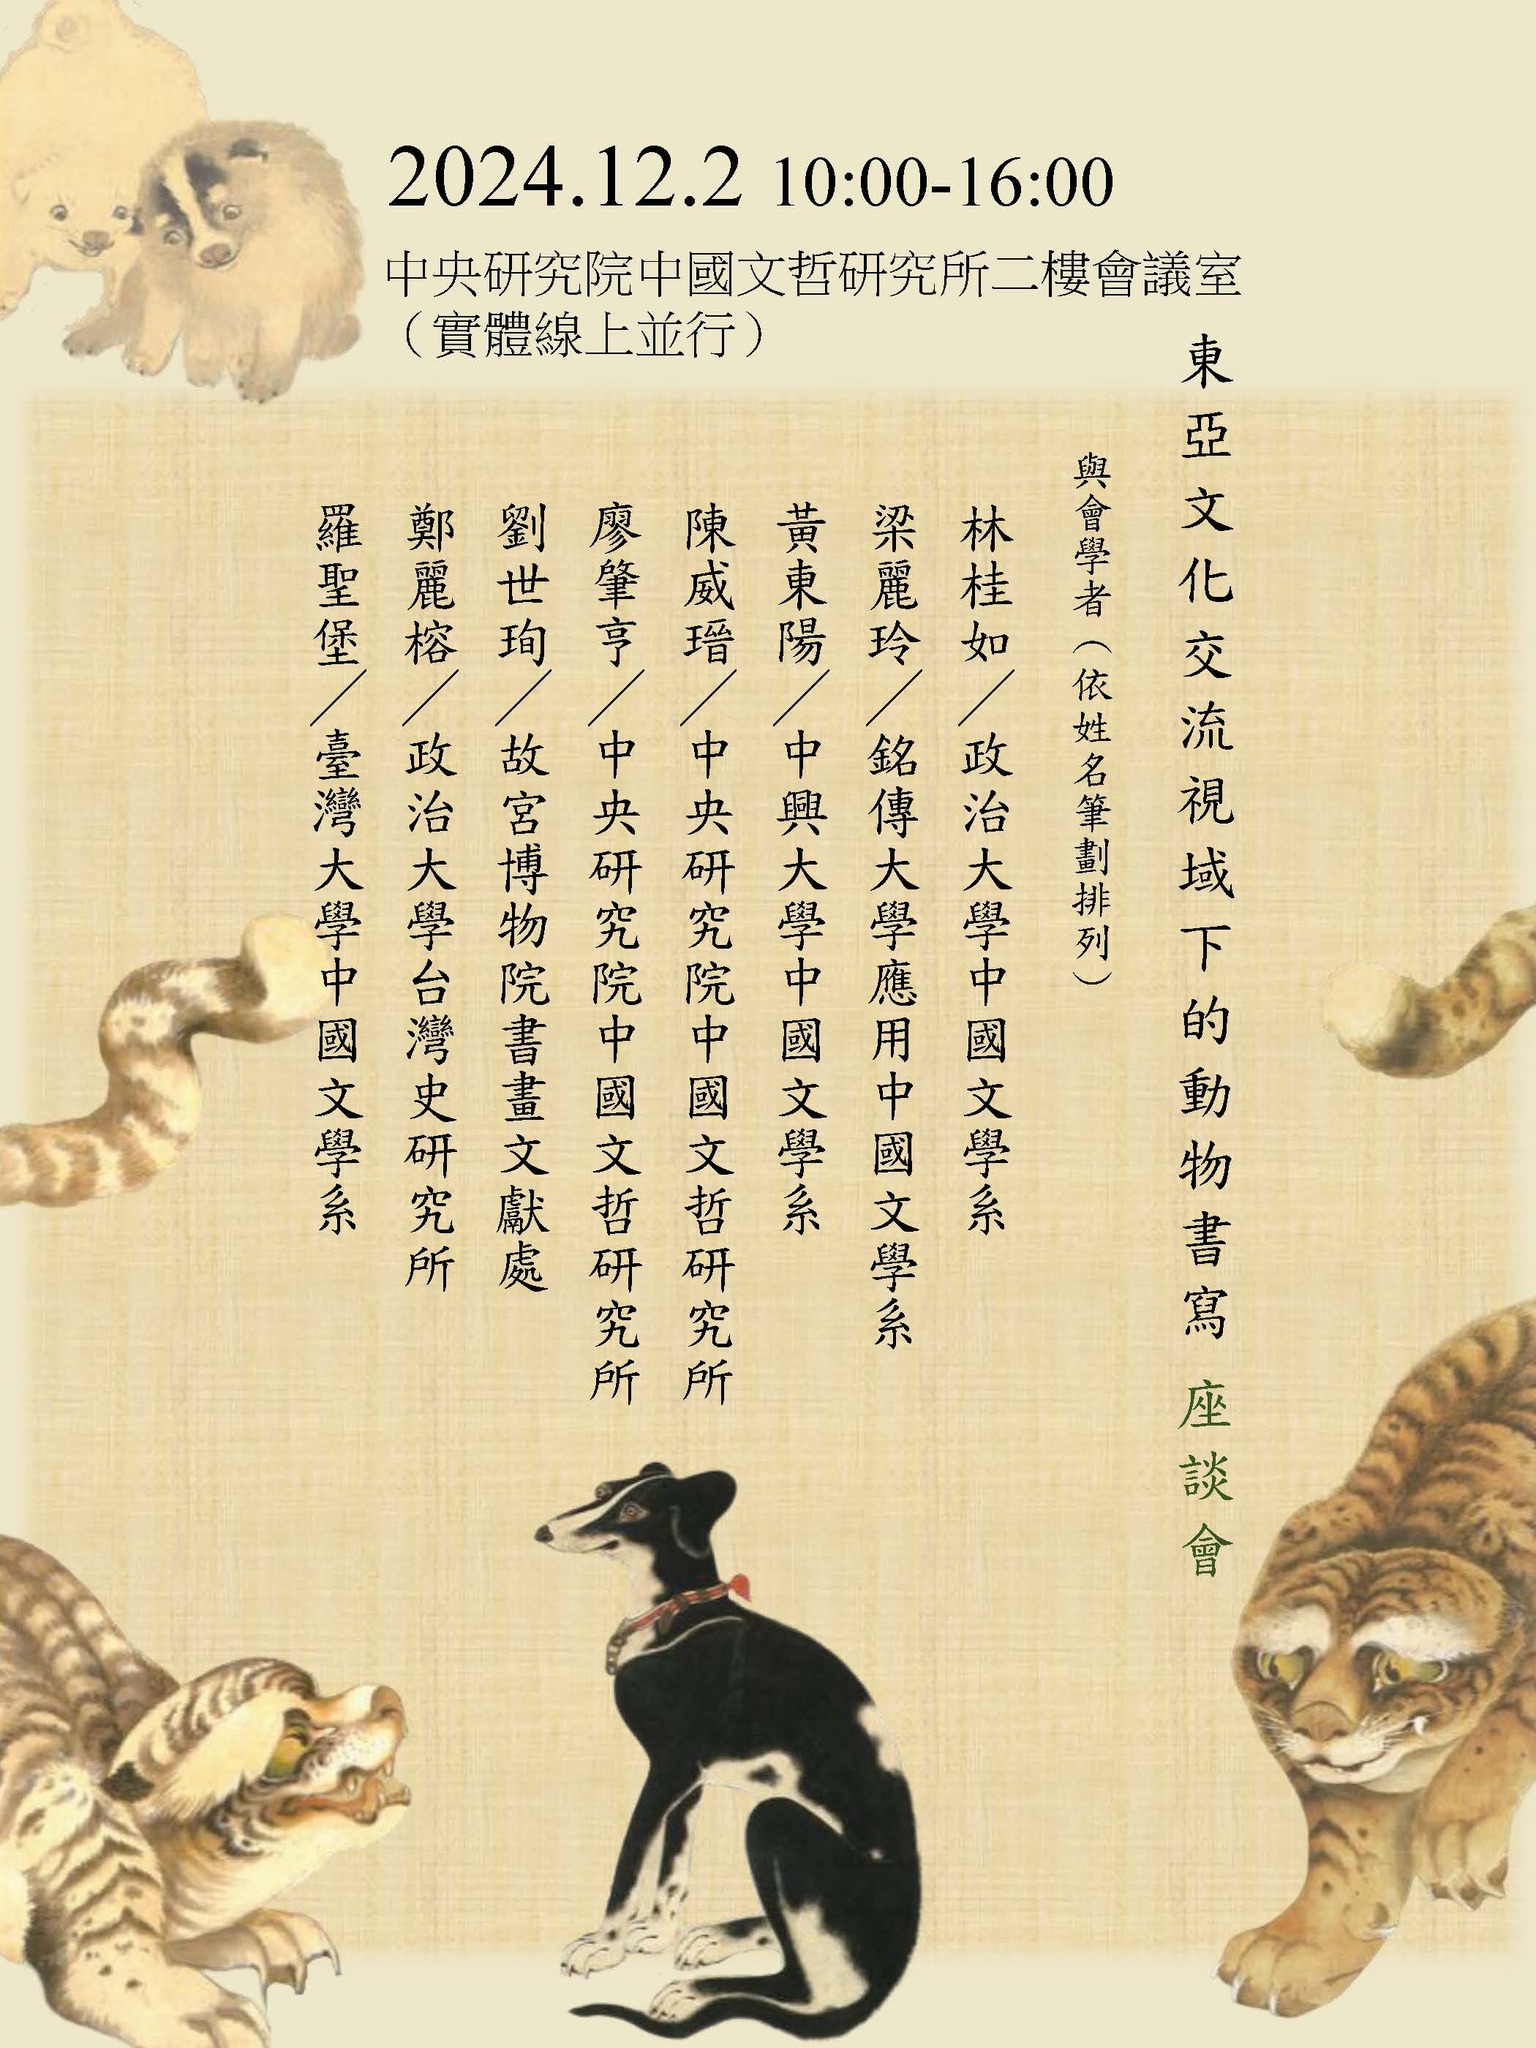 2024.12.2 10:00-16:00
中央研究院中國文哲研究所二樓會議室
（實體線上並行）
東亞文化交流視域下的動物書寫 座談會
與會學者（依姓名筆劃排列）
林桂如／政治大學中國文學系
梁麗玲／銘傳大學應用中國文學系
黃東陽／中興大學中國文學系
陳威瑨／中央研究院中國文哲研究所
廖肇亨／中央研究院中國文哲研究所
劉世珣／故宮博物院書畫文獻處
鄭麗榕／政治大學台灣史研究所
羅聖堡／臺灣大學中國文學系